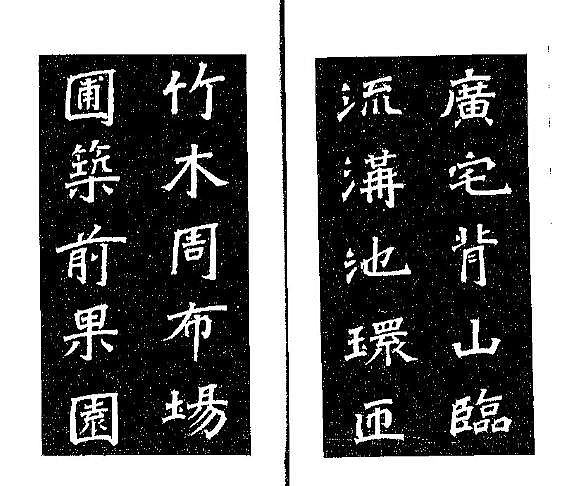 廣宅背山臨
流溝池環匝
竹木周布場
圃築前果園